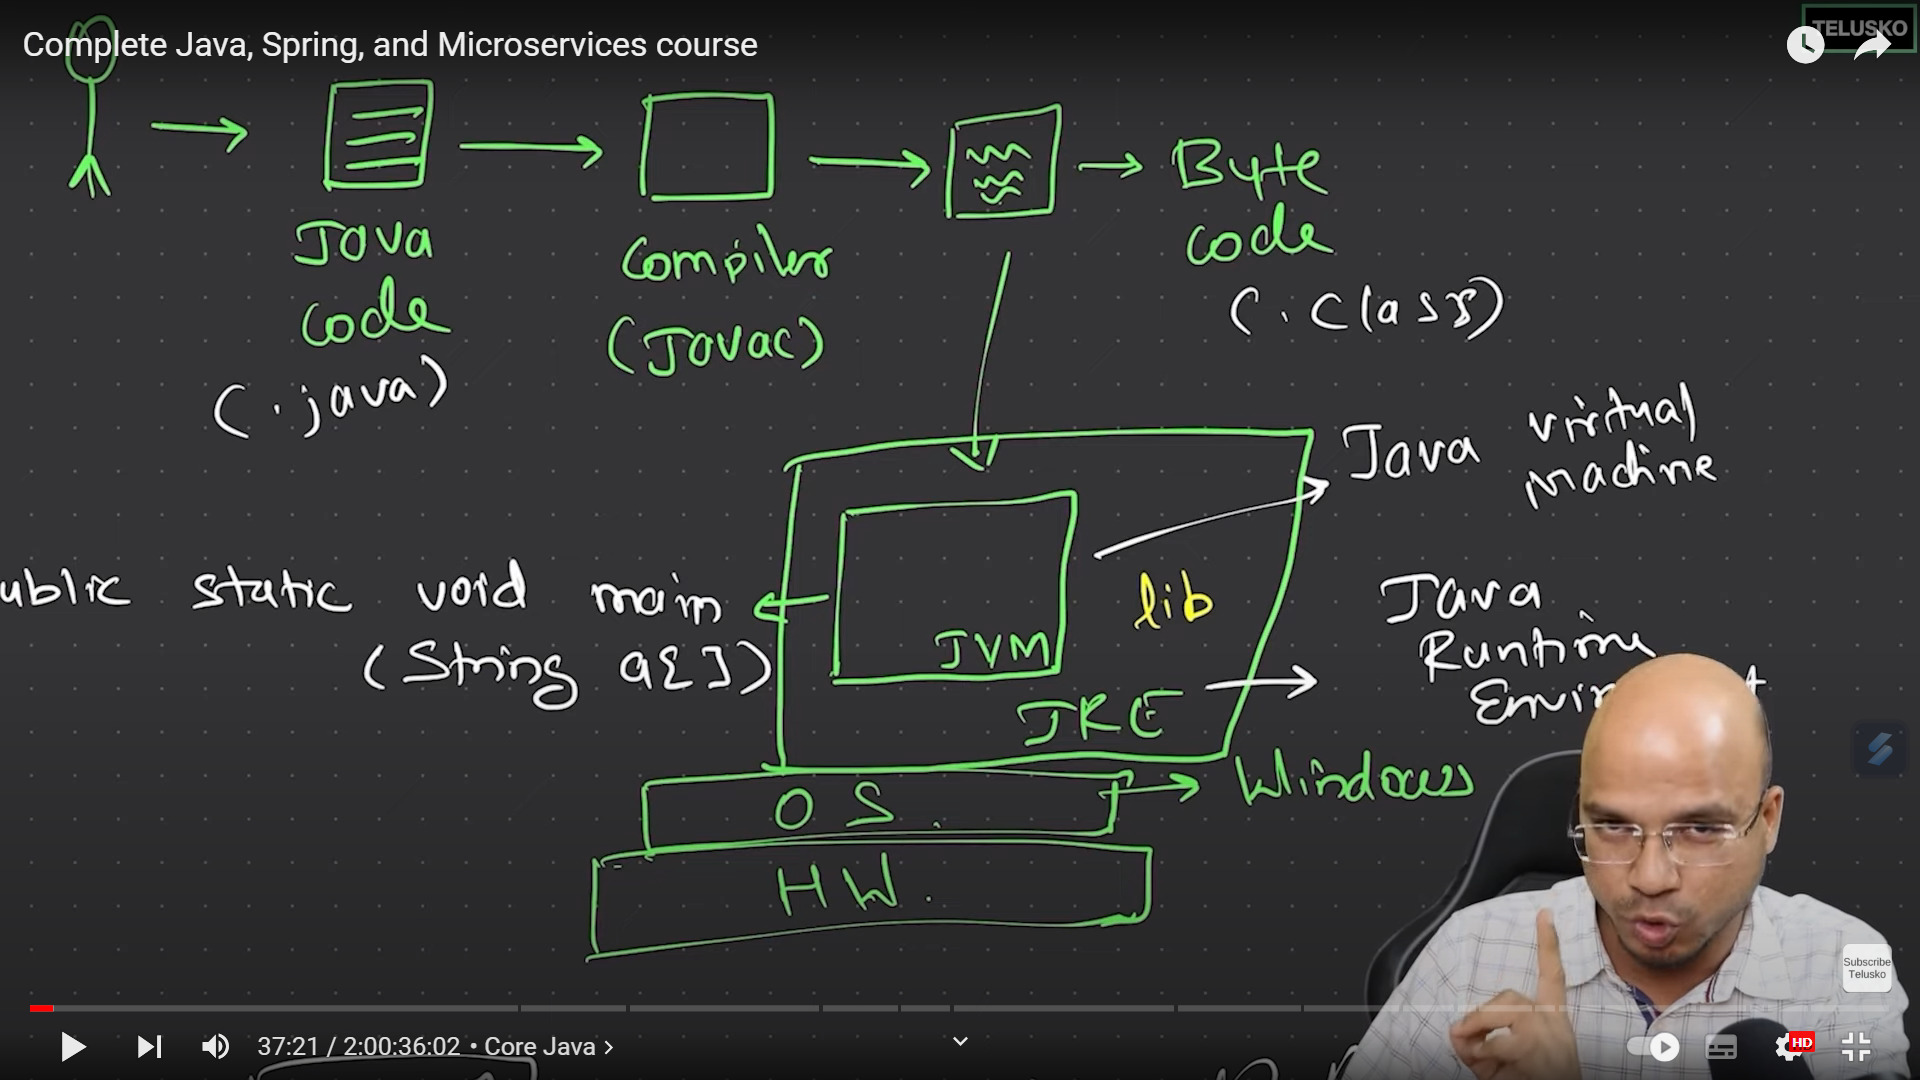 Complete Java, Spring, and Microservices course
TELUSKO
Java
code
(.java)
Compiler
(Javac)
Byte
code
(.class)
Java virtual
machine
ublic static void main
(String a[])
lib
JVM
JRE
Java
Runtime
OS.
Windows
HW.
Subscribe
Telusko
37:21 / 2:00:36:02 • Core Java ›
HD